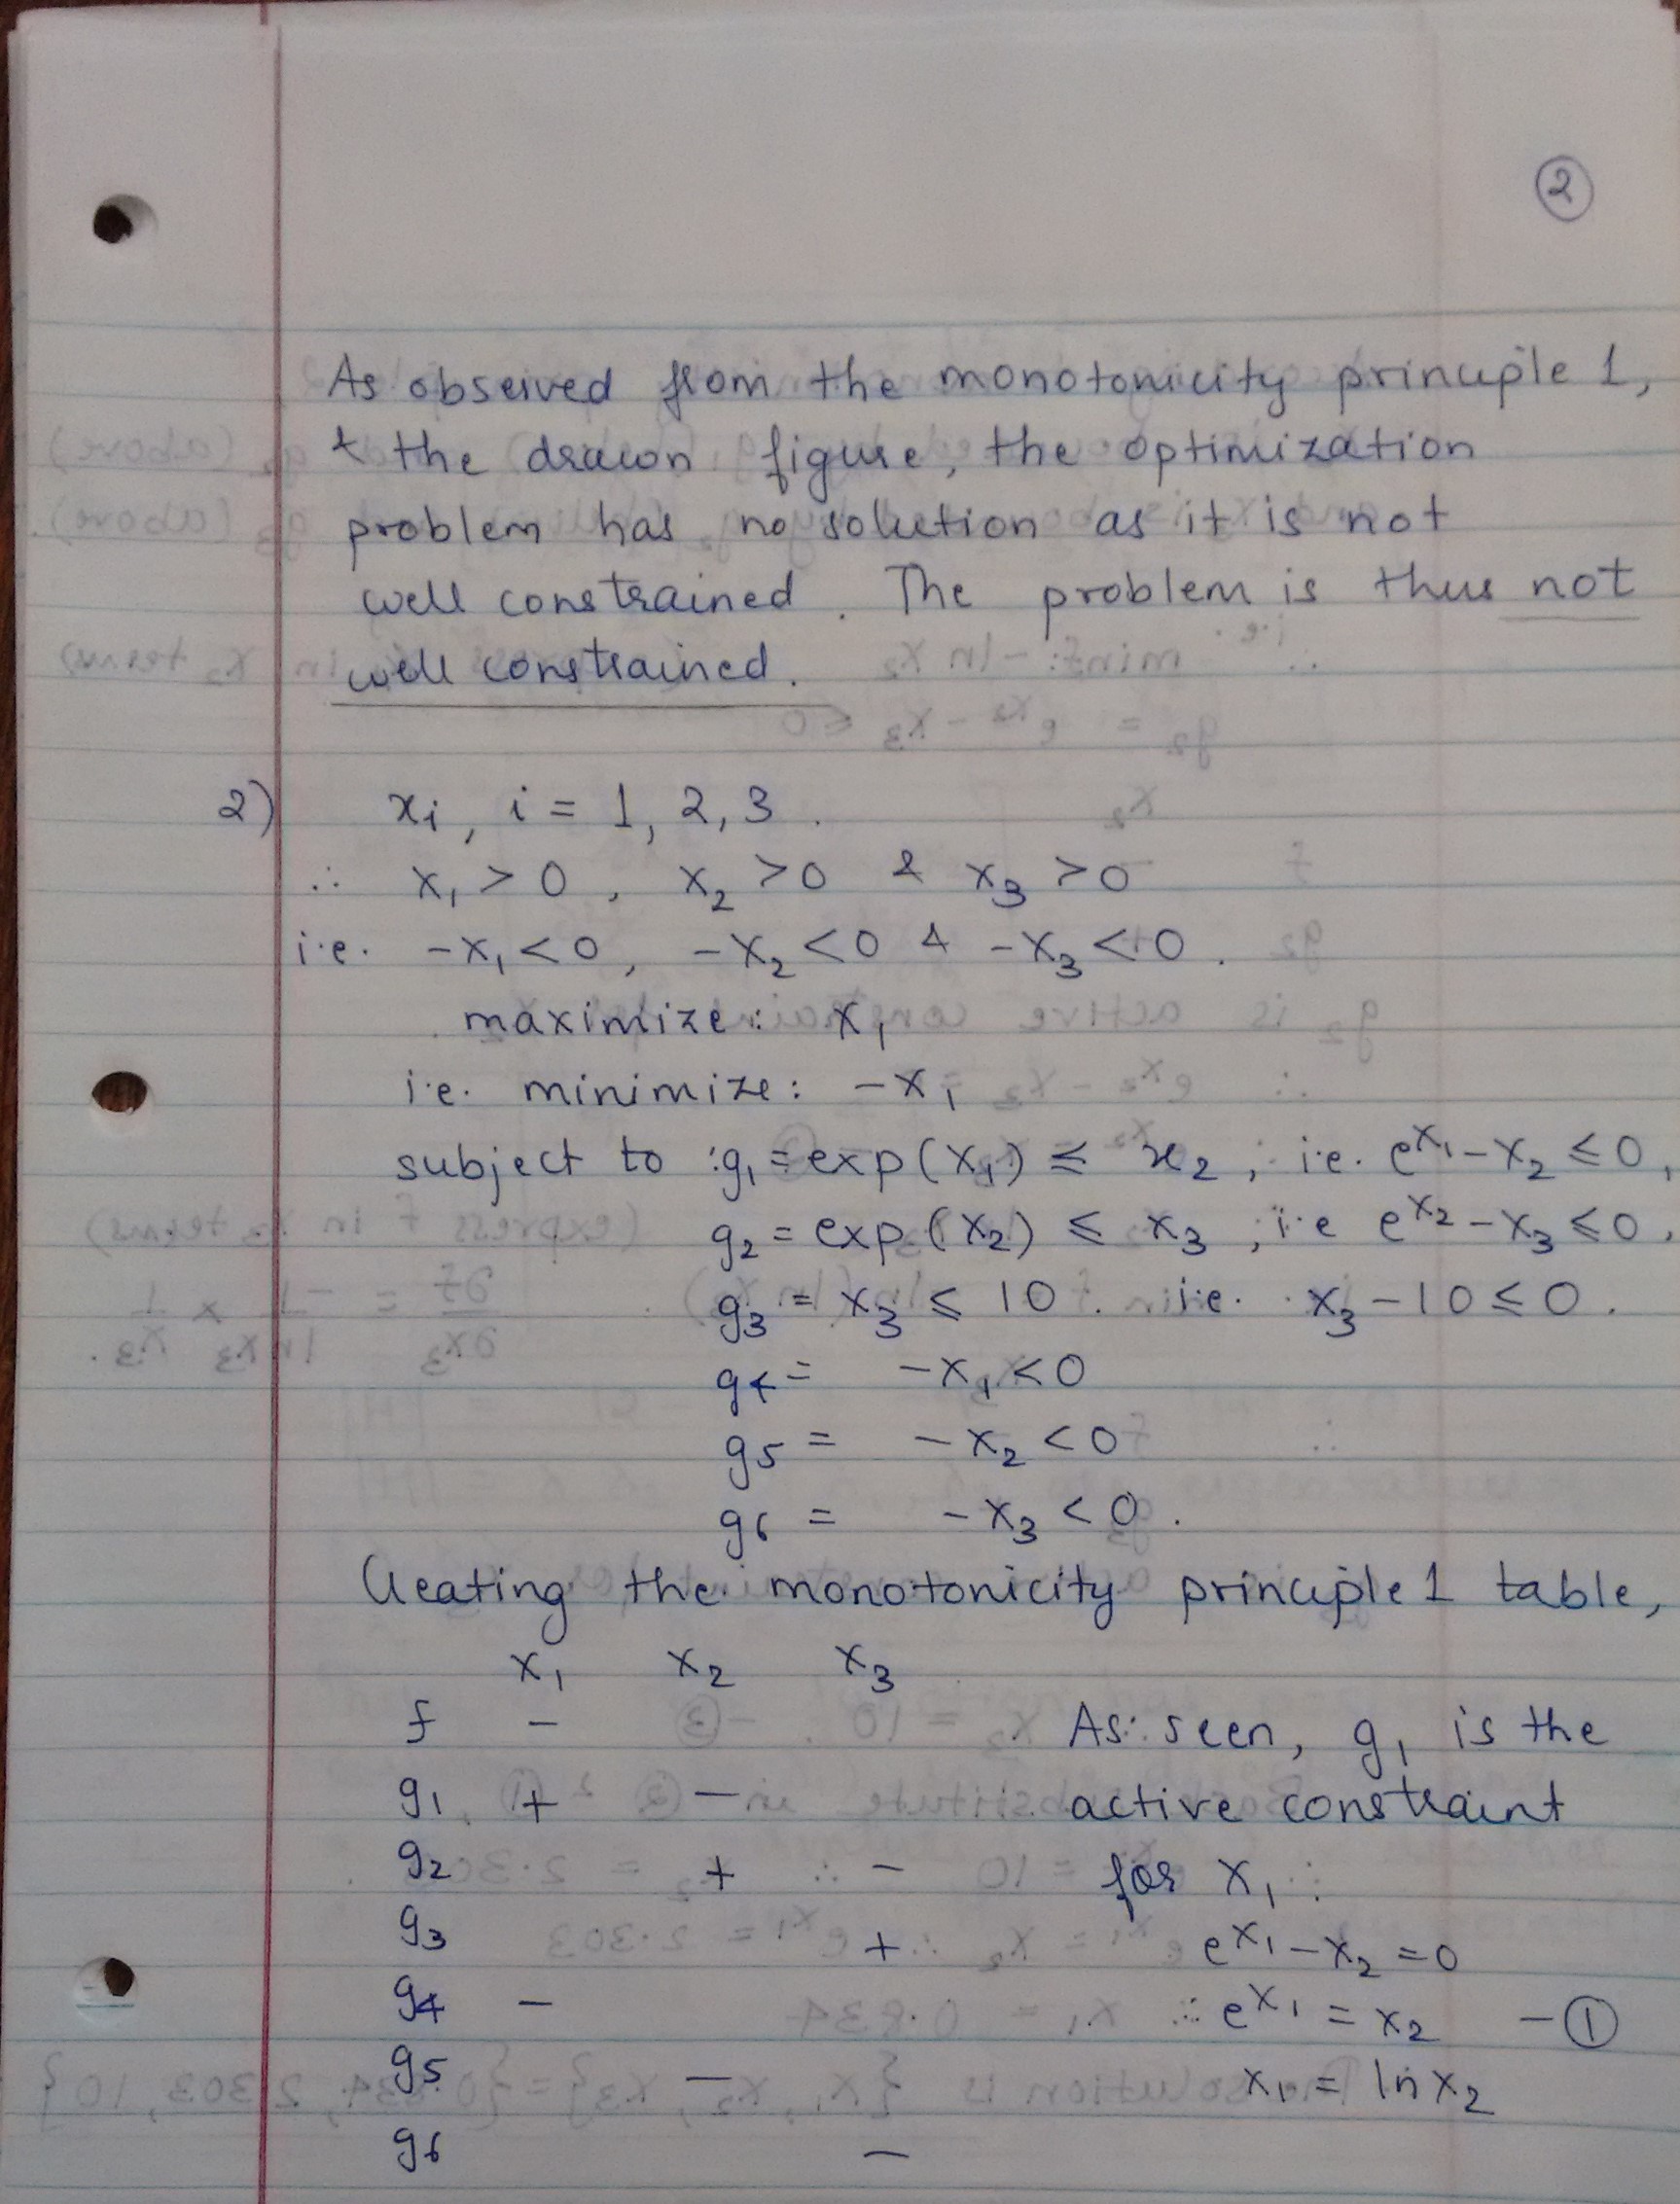 ②
As observed from the monotonicity principle 1,
& the drawn figure, the optimization
problem has no solution as it is not
well constrained. The problem is thus not
well constrained.
2) xi, i = 1, 2, 3.
∴ x₁ > 0, x₂ > 0 & x₃ > 0
i.e. -x₁ < 0, -x₂ < 0 & -x₃ < 0.
maximize: x₁
i.e. minimize: -x₁
subject to : g₁ = exp(x₁) ≤ x₂, i.e. e^x₁ - x₂ ≤ 0,
g₂ = exp(x₂) ≤ x₃, i.e e^x₂ - x₃ ≤ 0,
g₃ = x₃ ≤ 10. i.e. x₃ - 10 ≤ 0.
g₄ = -x₁ < 0
g₅ = -x₂ < 0
g₆ = -x₃ < 0.
Creating the monotonicity principle 1 table,
x₁ x₂ x₃
f - As seen, g₁ is the
g₁ + - active constraint
g₂ + - for x₁ :
g₃ + e^x₁ - x₂ = 0
g₄ - ∴ e^x₁ = x₂ - ①
g₅ - x₁ = ln x₂
g₆ -